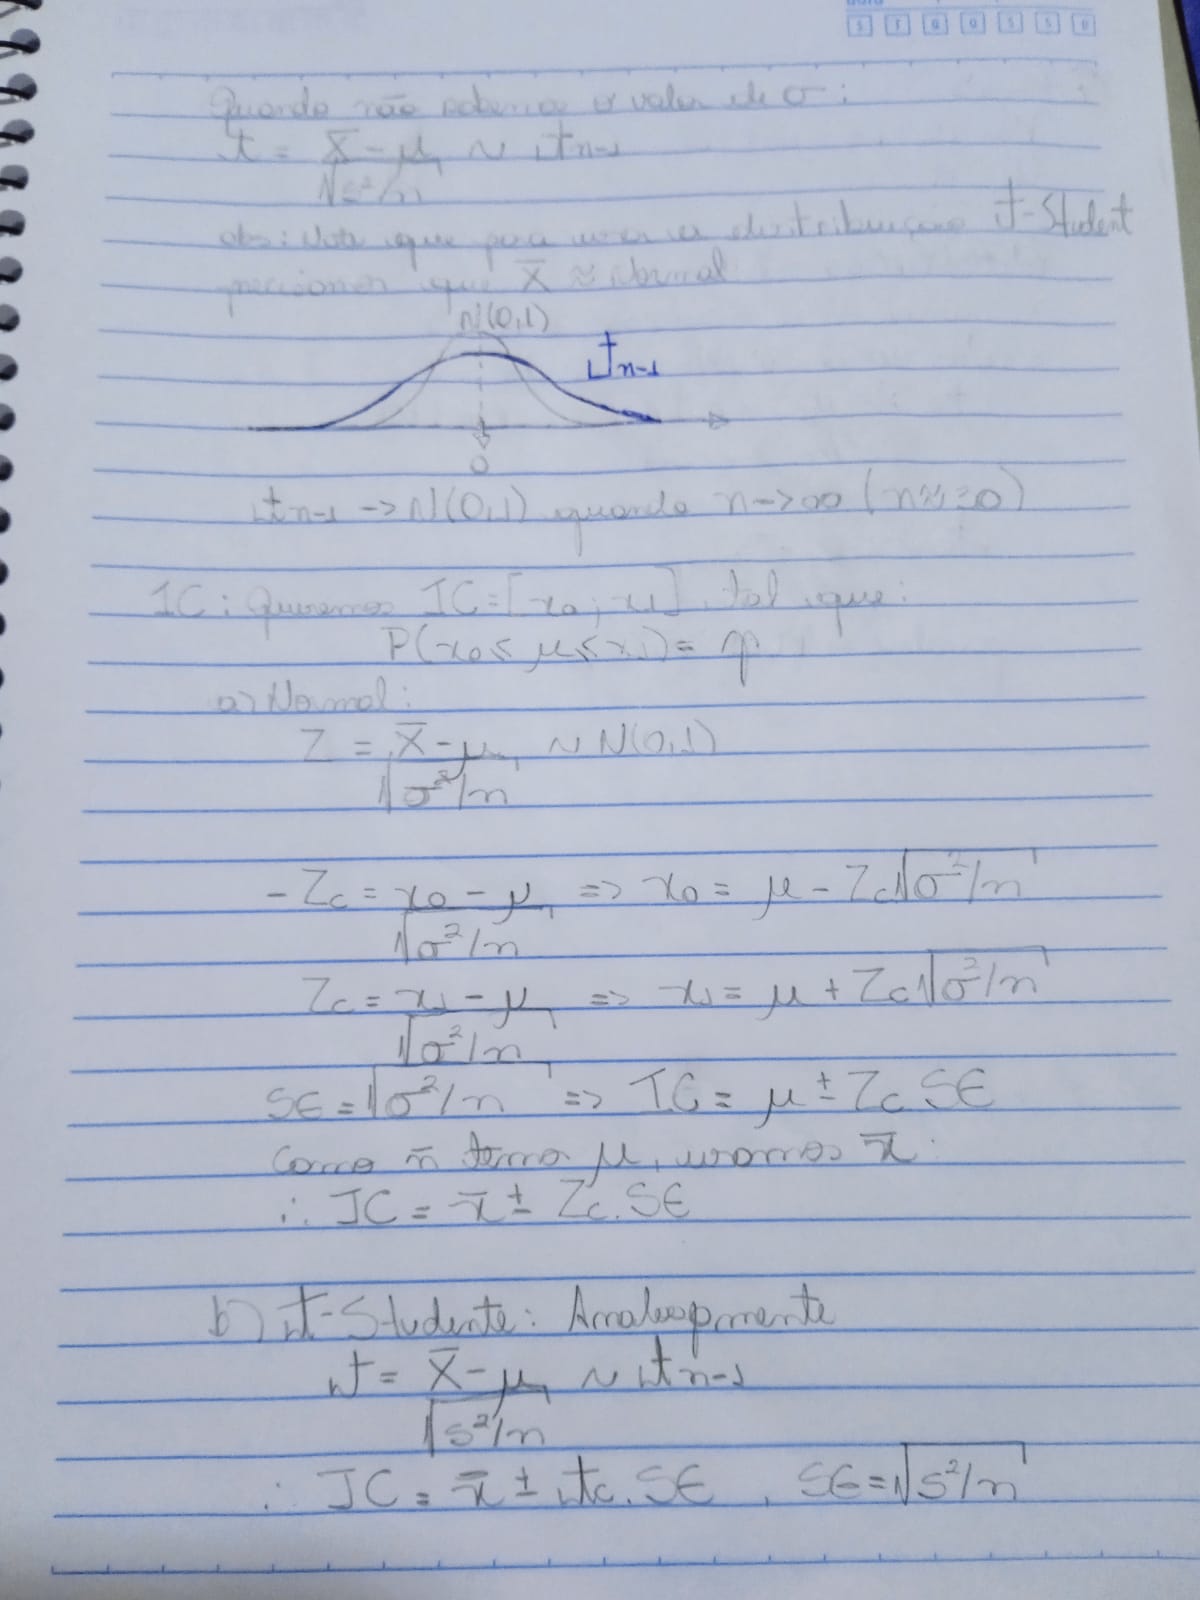 S T Q Q S S D
Quando não sabemos o valor de σ:
t = X̄ - μ ~ tn-1
√s²/n
obs: Note que para usar a distribuição t-Student
precisamos que X̄ ≈ Normal
N(0,1)
tn-1
0
tn-1 -> N(0,1) quando n->∞ (n≈30)
IC: Queremos IC=[x0; x1] tal que:
P(x0≤ μ≤x1)= γ
a) Normal:
Z = X̄ - μ ~ N(0,1)
√σ²/n
- Zc = x0 - μ => x0 = μ - Zc√σ²/n
√σ²/n
Zc = x1 - μ => x1 = μ + Zc√σ²/n
√σ²/n
SE = √σ²/n => IC = μ ± Zc SE
Como ñ temos μ, usamos x̄.
∴ IC = x̄ ± Zc. SE
b) t-Studente: Analogamente
t = X̄ - μ ~ tn-1
√s²/n
∴ IC = x̄ ± tc. SE , SE = √s²/n